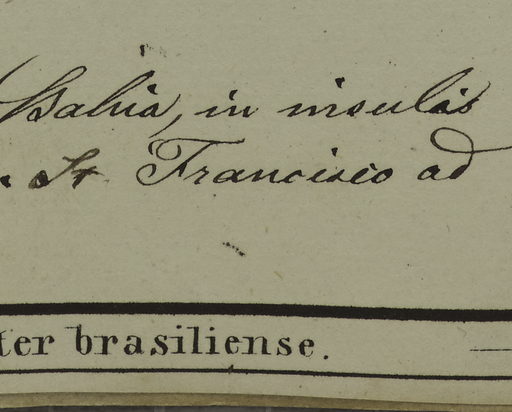 Bahia, in insulis
. St Francisco ad
ter brasiliense.